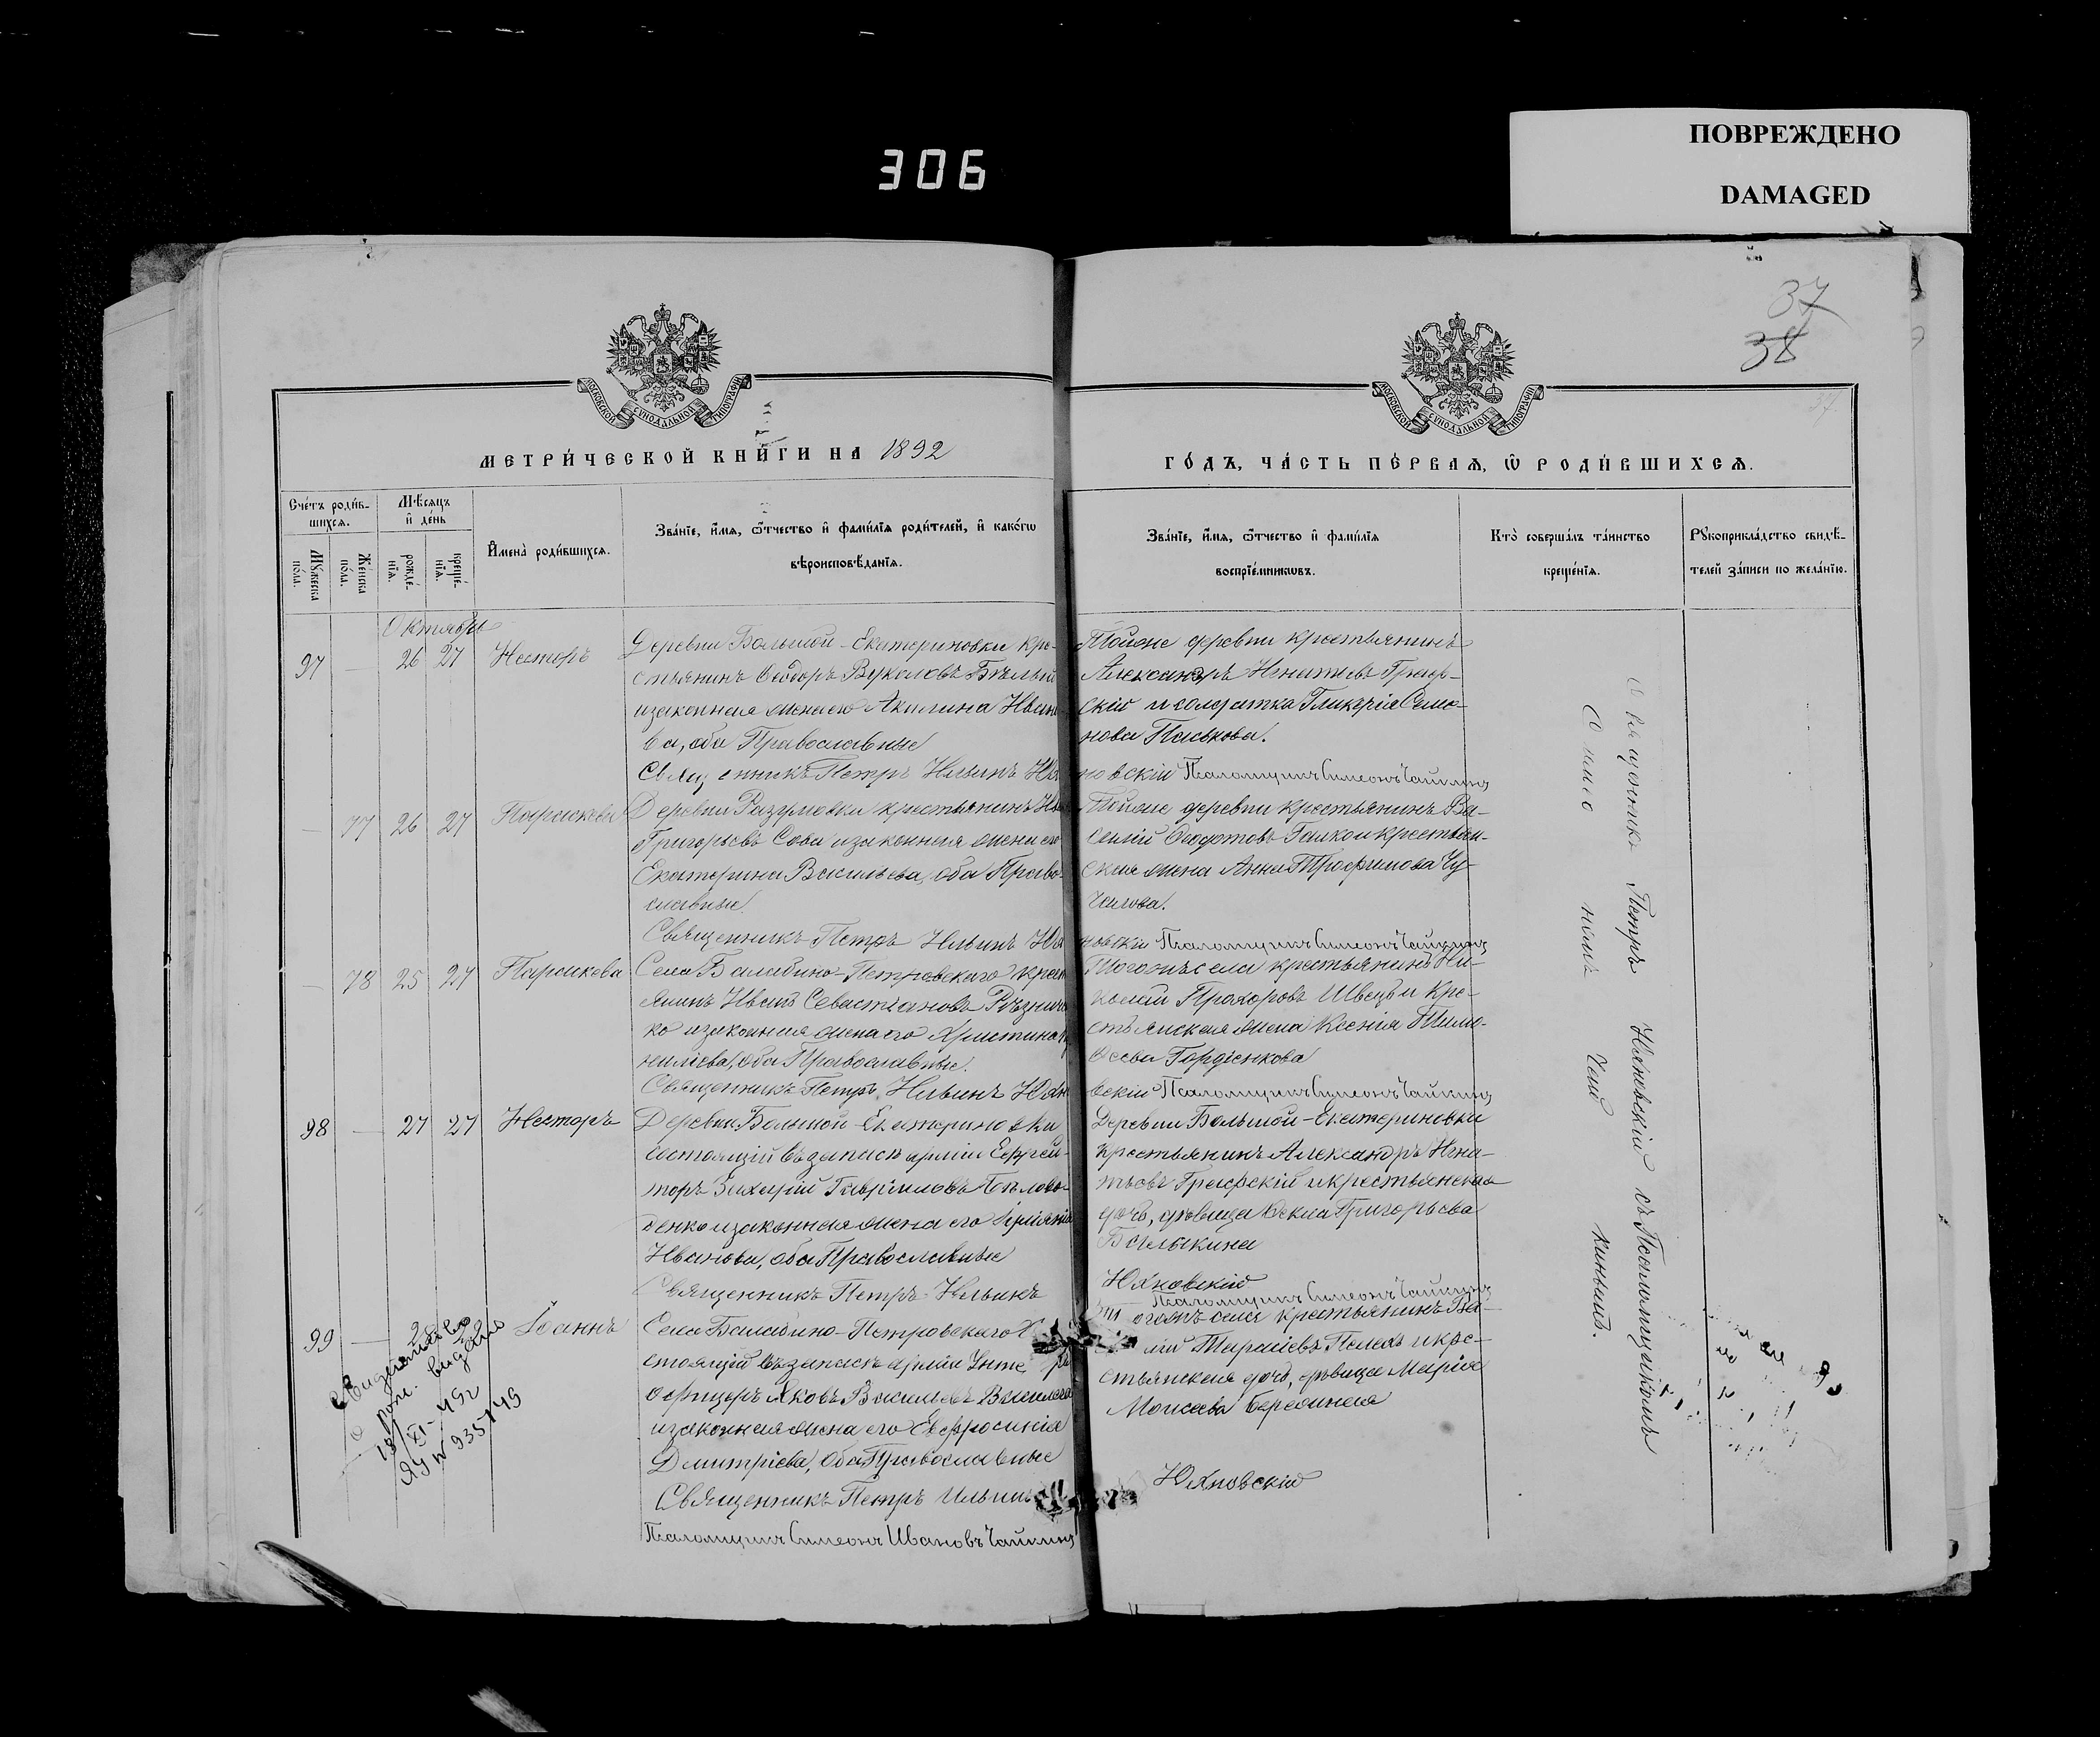 306
ПОВРЕЖДЕНО
DAMAGED
37
38
МОСКОВСКОЙ СѴНОДАЛЬНОЙ ТИПОГРАФІИ
МОСКОВСКОЙ СѴНОДАЛЬНОЙ ТИПОГРАФІИ
МЕТРИ́ЧЕСКОЙ КНИ́ГИ НА 1892
ГО́ДЪ, ЧА́СТЬ ПЕ́РВАѦ, Ѽ РОДИ́ВШИХСѦ.
Сче́тъ роди́в-
шихсѧ.
Мѣ́сѧцъ
и҆ де́нь
Мꙋ́жеска
по́ла.
Же́нска
по́ла.
рожде́-
нїѧ.
креще́-
нїѧ.
И҆мена̀ роди́вшихсѧ.
Зва́нїе, и҆́мѧ, ѻ҆́тчество и҆ фами́лїѧ роди́телей, и҆ како́гѡ
вѣроисповѣ́данїѧ.
Зва́нїе, и҆́мѧ, ѻ҆́тчество и҆ фами́лїѧ
воспрїе́мникѡвъ.
Кто̀ соверша́лъ та́инство
креще́нїѧ.
Рꙋкоприкла́дство свидѣ́-
телей за́писи по жела́нїю.
Октябрь
97 — 26 27 Несторъ
Деревни Большой-Екатериновки кре-
стьянинъ Ѳеодоръ Вуколовъ Бѣлый
и законная жена его Акилина Ивано-
ва, оба Православные
Тойже деревни крестьянинъ
Александръ Игнатьевъ Граф-
скій и солдатка Гликерія Семе-
нова Панькова.
Священникъ Петръ Ильинъ Юхновскій Псаломщикъ Симеонъ Чайкинъ
— 77 26 27 Параскева
Деревни Разумовки крестьянинъ
Григорьевъ Сова и законная жена его
Екатерина Васильева, оба Право-
славные.
Тойже деревни крестьянинъ Ва-
силій Ѳеодотовъ Галко и крестьян-
ская жена Анна Трофимова Чу-
Священникъ Петръ Ильинъ Юхновскій Псаломщикъ Симеонъ Чайкинъ
— 78 25 27 Параскева
Села Балабино-Петровскаго крест
янинъ Иванъ Севастіановъ Рѣзничен
ко и законная жена его Христина
нилиева, оба Православные.
Тогожъ села крестьянинъ Ни-
колай Прохоровъ Швецъ и кре-
стьянская жена Ксенія Тимо-
ѳеева Гордіенкова
Священникъ Петръ Ильинъ Юхновскій Псаломщикъ Симеонъ Чайкинъ
98 — 27 27 Несторъ
Деревни Большой-Екатериновки
состоящій въ запасѣ арміи Ефрей-
торъ Захарій Гавриловъ Бѣлово-
денко и законная жена его
Иванова, оба Православные
Деревни Большой-Екатериновки
крестьянинъ Александръ Игна-
тьевъ Графскій и крестьянская
дочь, дѣвица Ѳекла Григорьева
Священникъ Петръ Ильинъ Юхновскій
Псаломщикъ Симеонъ Чайкинъ
99 — Іоаннъ
Села Балабино-Петровскаго
стоящій въ запасѣ арміи Унте
офицеръ Яковъ Васильевъ
и законная жена его Евфросинія
Дмитріева, оба Православные
огожъ села крестьянинъ Ва-
лій Тарасіевъ и кре-
стьянская дочь, дѣвица Марія
Моисеева
Священникъ Петръ Ильинъ Юхновскій
Псаломщикъ Симеонъ Ивановъ Чайкинъ
Свидетельство
о рож. выдано
18/XI-49г
ЯУ № 935749
Священникъ Петръ Юхновскій съ Псаломщикомъ
Симеономъ Чайкинымъ.